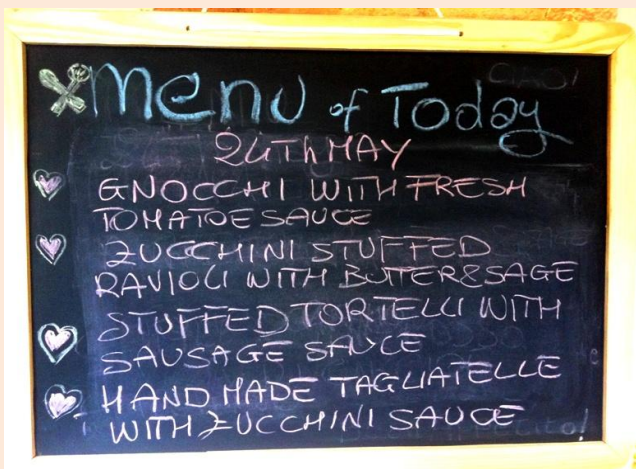 Menu of Today
24Th MAY
GNOCCHI WITH FRESH
TOMATOE SAUCE
ZUCCHINI STUFFED
RAVIOLI WITH BUTTER&SAGE
STUFFED TORTELLI WITH
SAUSAGE SAUCE
HAND MADE TAGLIATELLE
WITH ZUCCHINI SAUCE